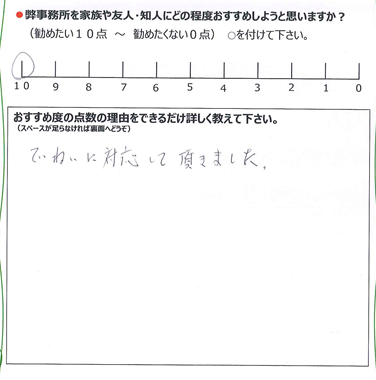 ●弊事務所を家族や友人・知人にどの程度おすすめしようと思いますか？
（勧めたい１０点　～　勧めたくない０点）　○を付けて下さい。
10 9 8 7 6 5 4 3 2 1 0
おすすめ度の点数の理由をできるだけ詳しく教えて下さい。
（スペースが足らなければ裏面へどうぞ）
ていねいに対応して頂きました。